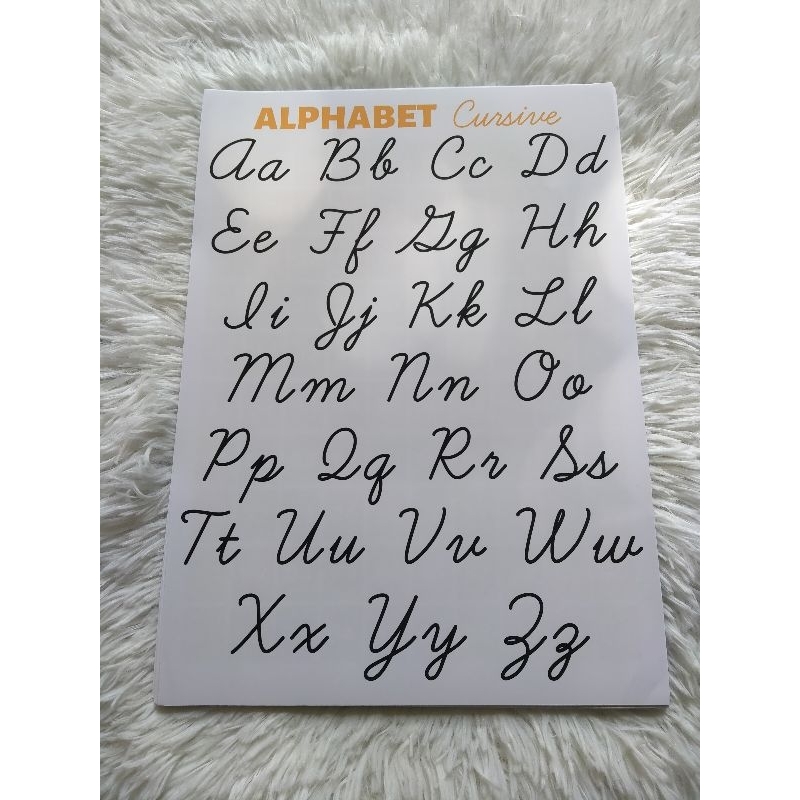 ALPHABET Cursive
Aa Bb Cc Dd
Ee Ff Gg Hh
Ii Jj Kk Ll
Mm Nn Oo
Pp Qq Rr Ss
Tt Uu Vv Ww
Xx Yy Zz